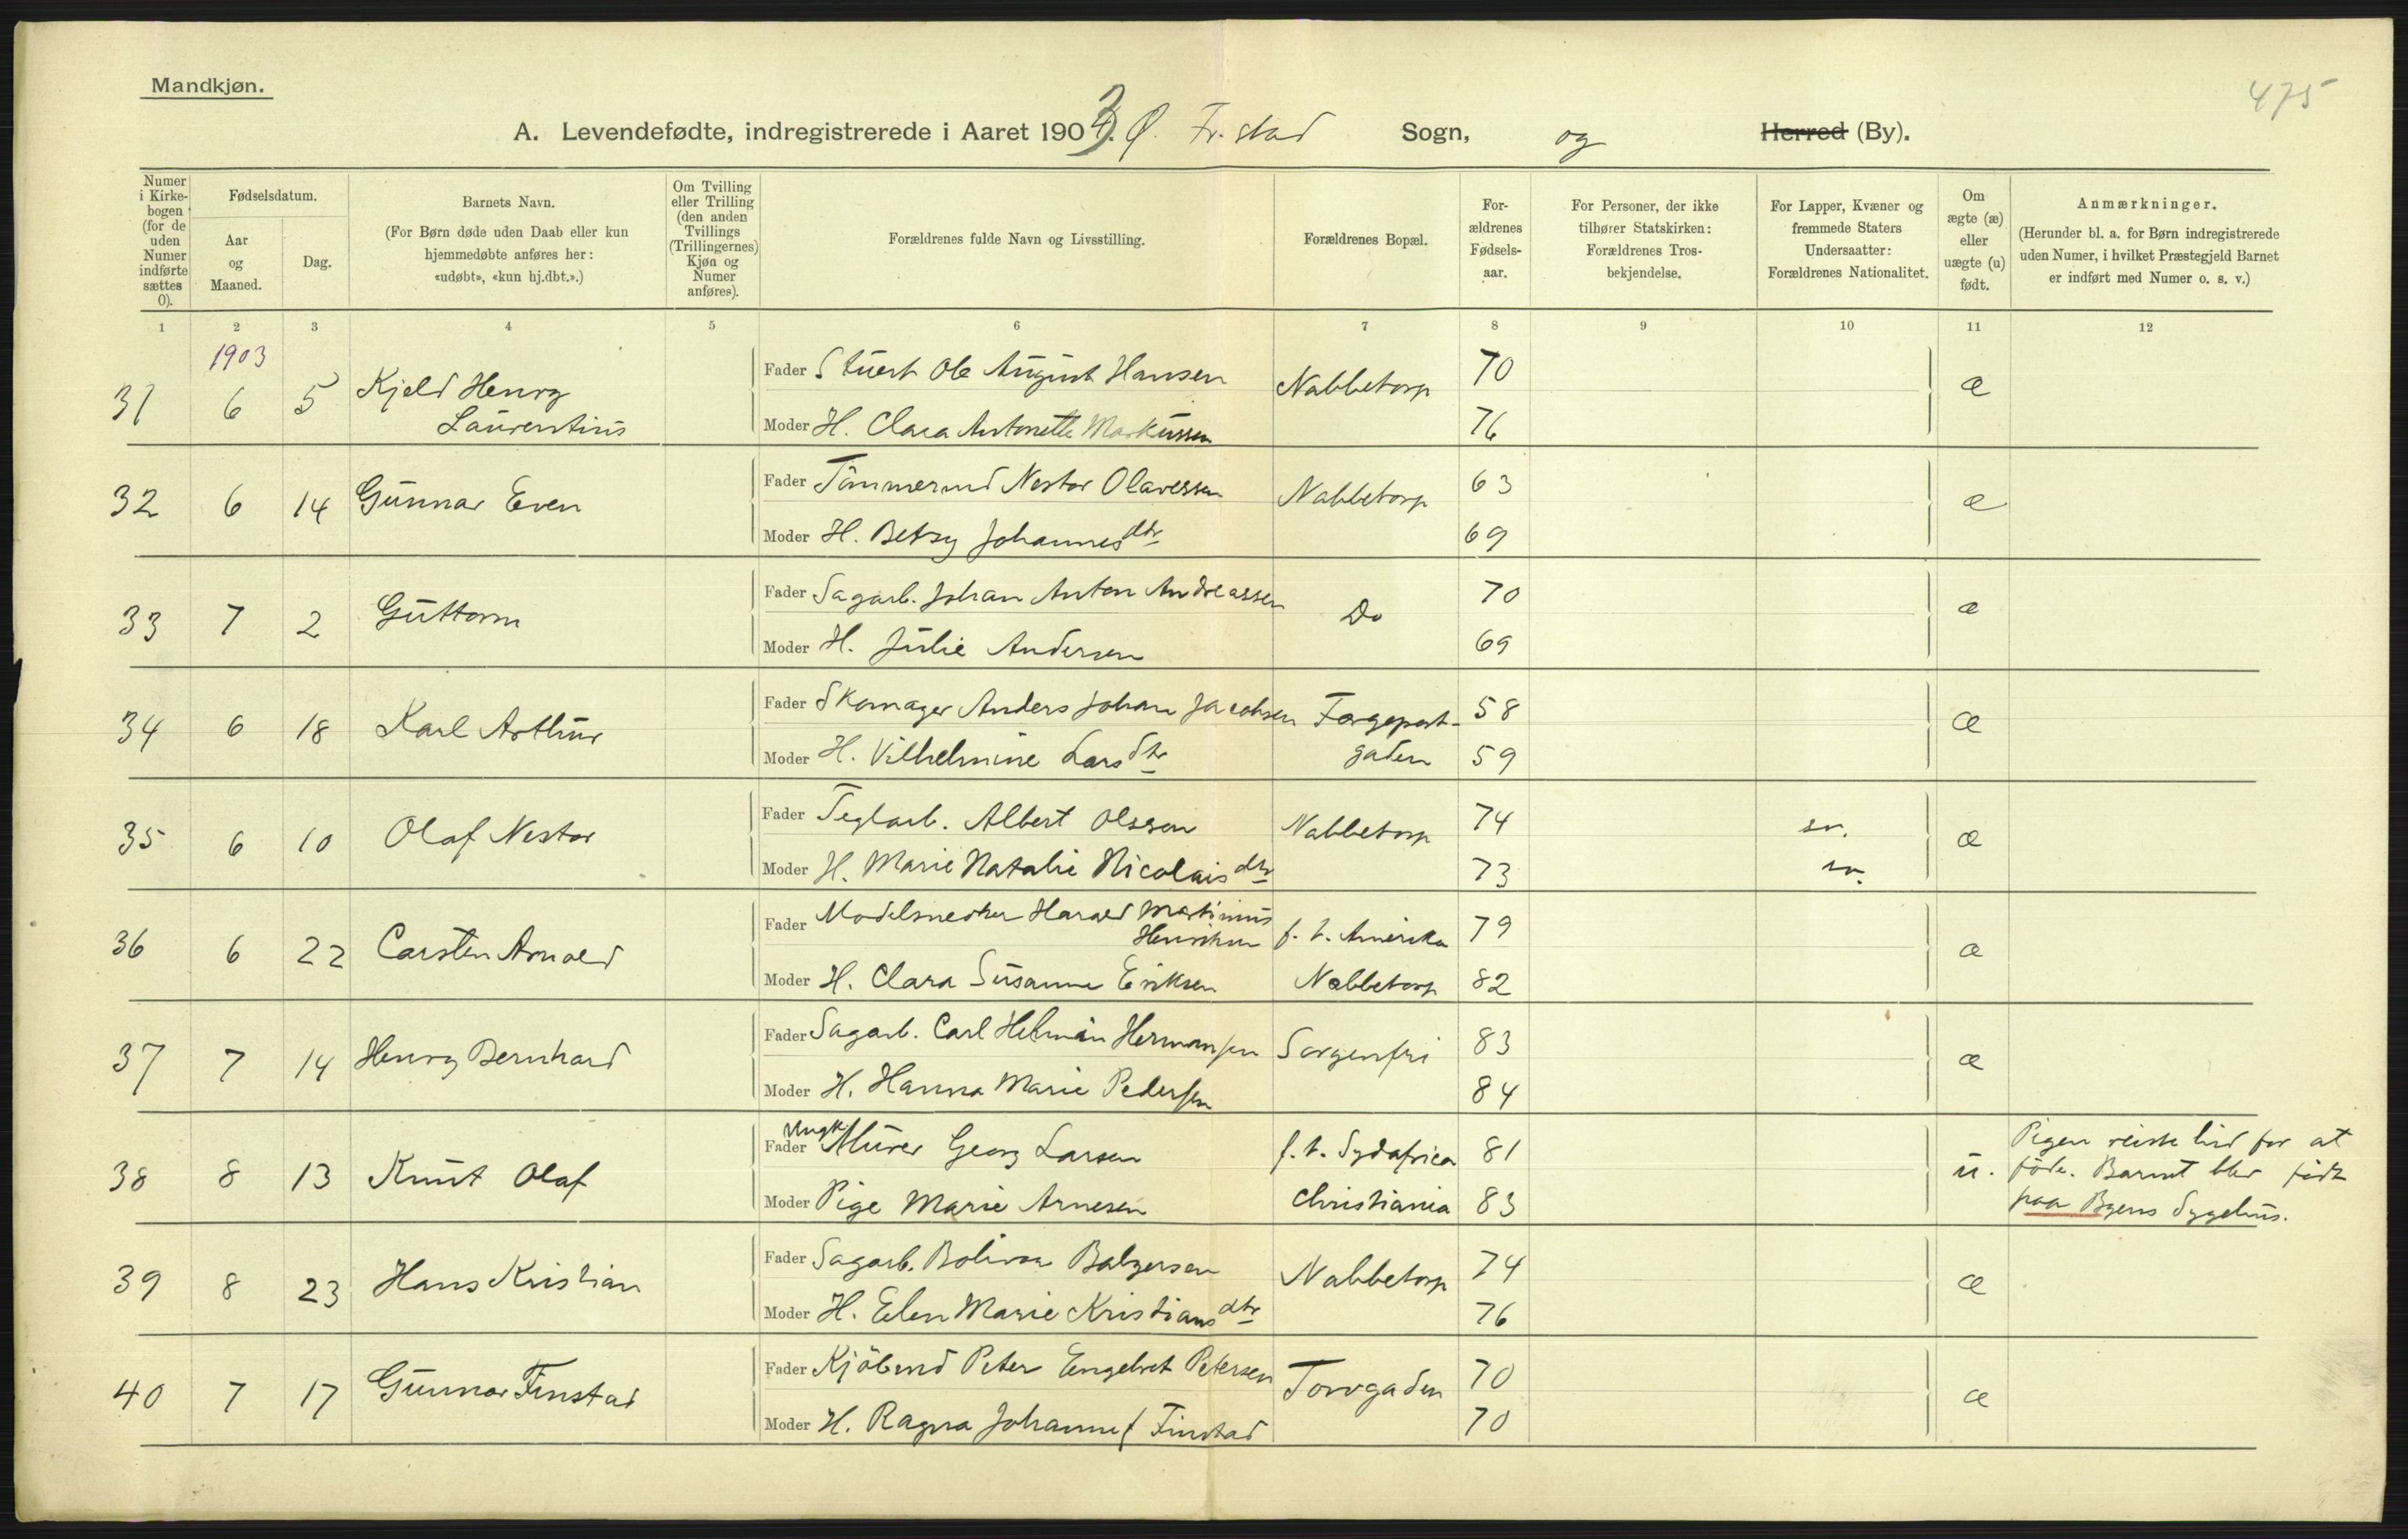 Mandkjøn.
475
A. Levendefødte, indregistrerede i Aaret 1903. Ø. Fr. stad Sogn, og Herred (By).
Numer i Kirkebogen (for de uden Numer indførte sættes 0).
Fødselsdatum.
Aar og Maaned.
Dag.
Barnets Navn.
(For Børn døde uden Daab eller kun hjemmedøbte anføres her: «udøbt», «kun hj.dbt.».)
Om Tvilling eller Trilling (den anden Tvillings (Trillingernes) Kjøn og Numer anføres).
Forældrenes fulde Navn og Livsstilling.
Forældrenes Bopæl.
Forældrenes Fødselsaar.
For Personer, der ikke tilhører Statskirken: Forældrenes Trosbekjendelse.
For Lapper, Kvæner og fremmede Staters Undersaatter: Forældrenes Nationalitet.
Om ægte (æ) eller uægte (u) født.
Anmærkninger.
(Herunder bl. a. for Børn indregistrerede uden Numer, i hvilket Præstegjeld Barnet er indført med Numer o. s. v.)
1 2 3 4 5 6 7 8 9 10 11 12
1903
31 6 5 Kjeld Henry Laurentius Fader Stuert Ole August Hansen Nabbetorp 70 æ
Moder H. Clara Antonette Markussen 76
32 6 14 Gunnar Even Fader Tömmermd Nestor Olavessen Nabbetorp 63 æ
Moder H. Betsy Johannesdtr 69
33 7 2 Guttorm Fader Sagarb. Johan Anton Andreassen Do 70 æ
Moder H. Julie Andersen 69
34 6 18 Karl Arthur Fader Skomager Anders Johan Jacobsen Færgeport- 58 æ
Moder H. Vilhelmine Larsdtr gaden 59
35 6 10 Olaf Nestor Fader Teglarb. Albert Olssen Nabbetorp 74 sv. æ
Moder H. Marie Natalie Nicolaisdtr 73 sv.
36 6 22 Carsten Arnold Fader Modelsnedker Harald Martinius Henriksen f. t. Amerika 79 æ
Moder H. Clara Susanne Eriksen Nabbetorp 82
37 7 14 Henry Bernhard Fader Sagarb. Carl Helmin Hermansen Sorgenfri 83 æ
Moder H. Hanna Marie Pedersen 84
38 8 13 Knut Olaf Fader Ungk Murer Georg Larsen f. t. Sydafrica 81 u. Pigen reiste hid for at
föde. Barnet blev födt
Moder Pige Marie Arnesen Christiania 83 paa Byens Sygehus.
39 8 23 Hans Kristian Fader Sagarb. Bolivar Balzersen Nabbetorp 74 æ
Moder H. Elen Marie Kristiansdtr 76
40 7 17 Gunnar Finstad Fader Kjöbmd Peter Engelbret Petersen Torvgaden 70 æ
Moder H. Ragna Johanne f Finstad 70